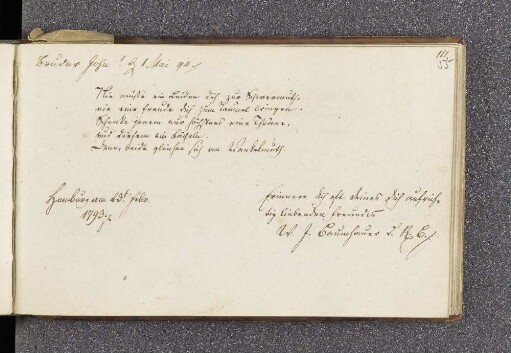 111
55
Bruder John † d 1 Mai 94
Nie müße ein Leiden dich zur Schwermuth,
nie eine Freude dich zum Taumel bringen.
Schenke jenem nur höchstens eine Thräne,
und diesem ein Lächeln.
Denn, beide gleichen sich an Wankelmuth.
Hamburg am 23t Febr.
1793.
Erinnere dich oft deines dich aufrich
tig liebenden Freundes
W. J. Baumhauer d. R. B.